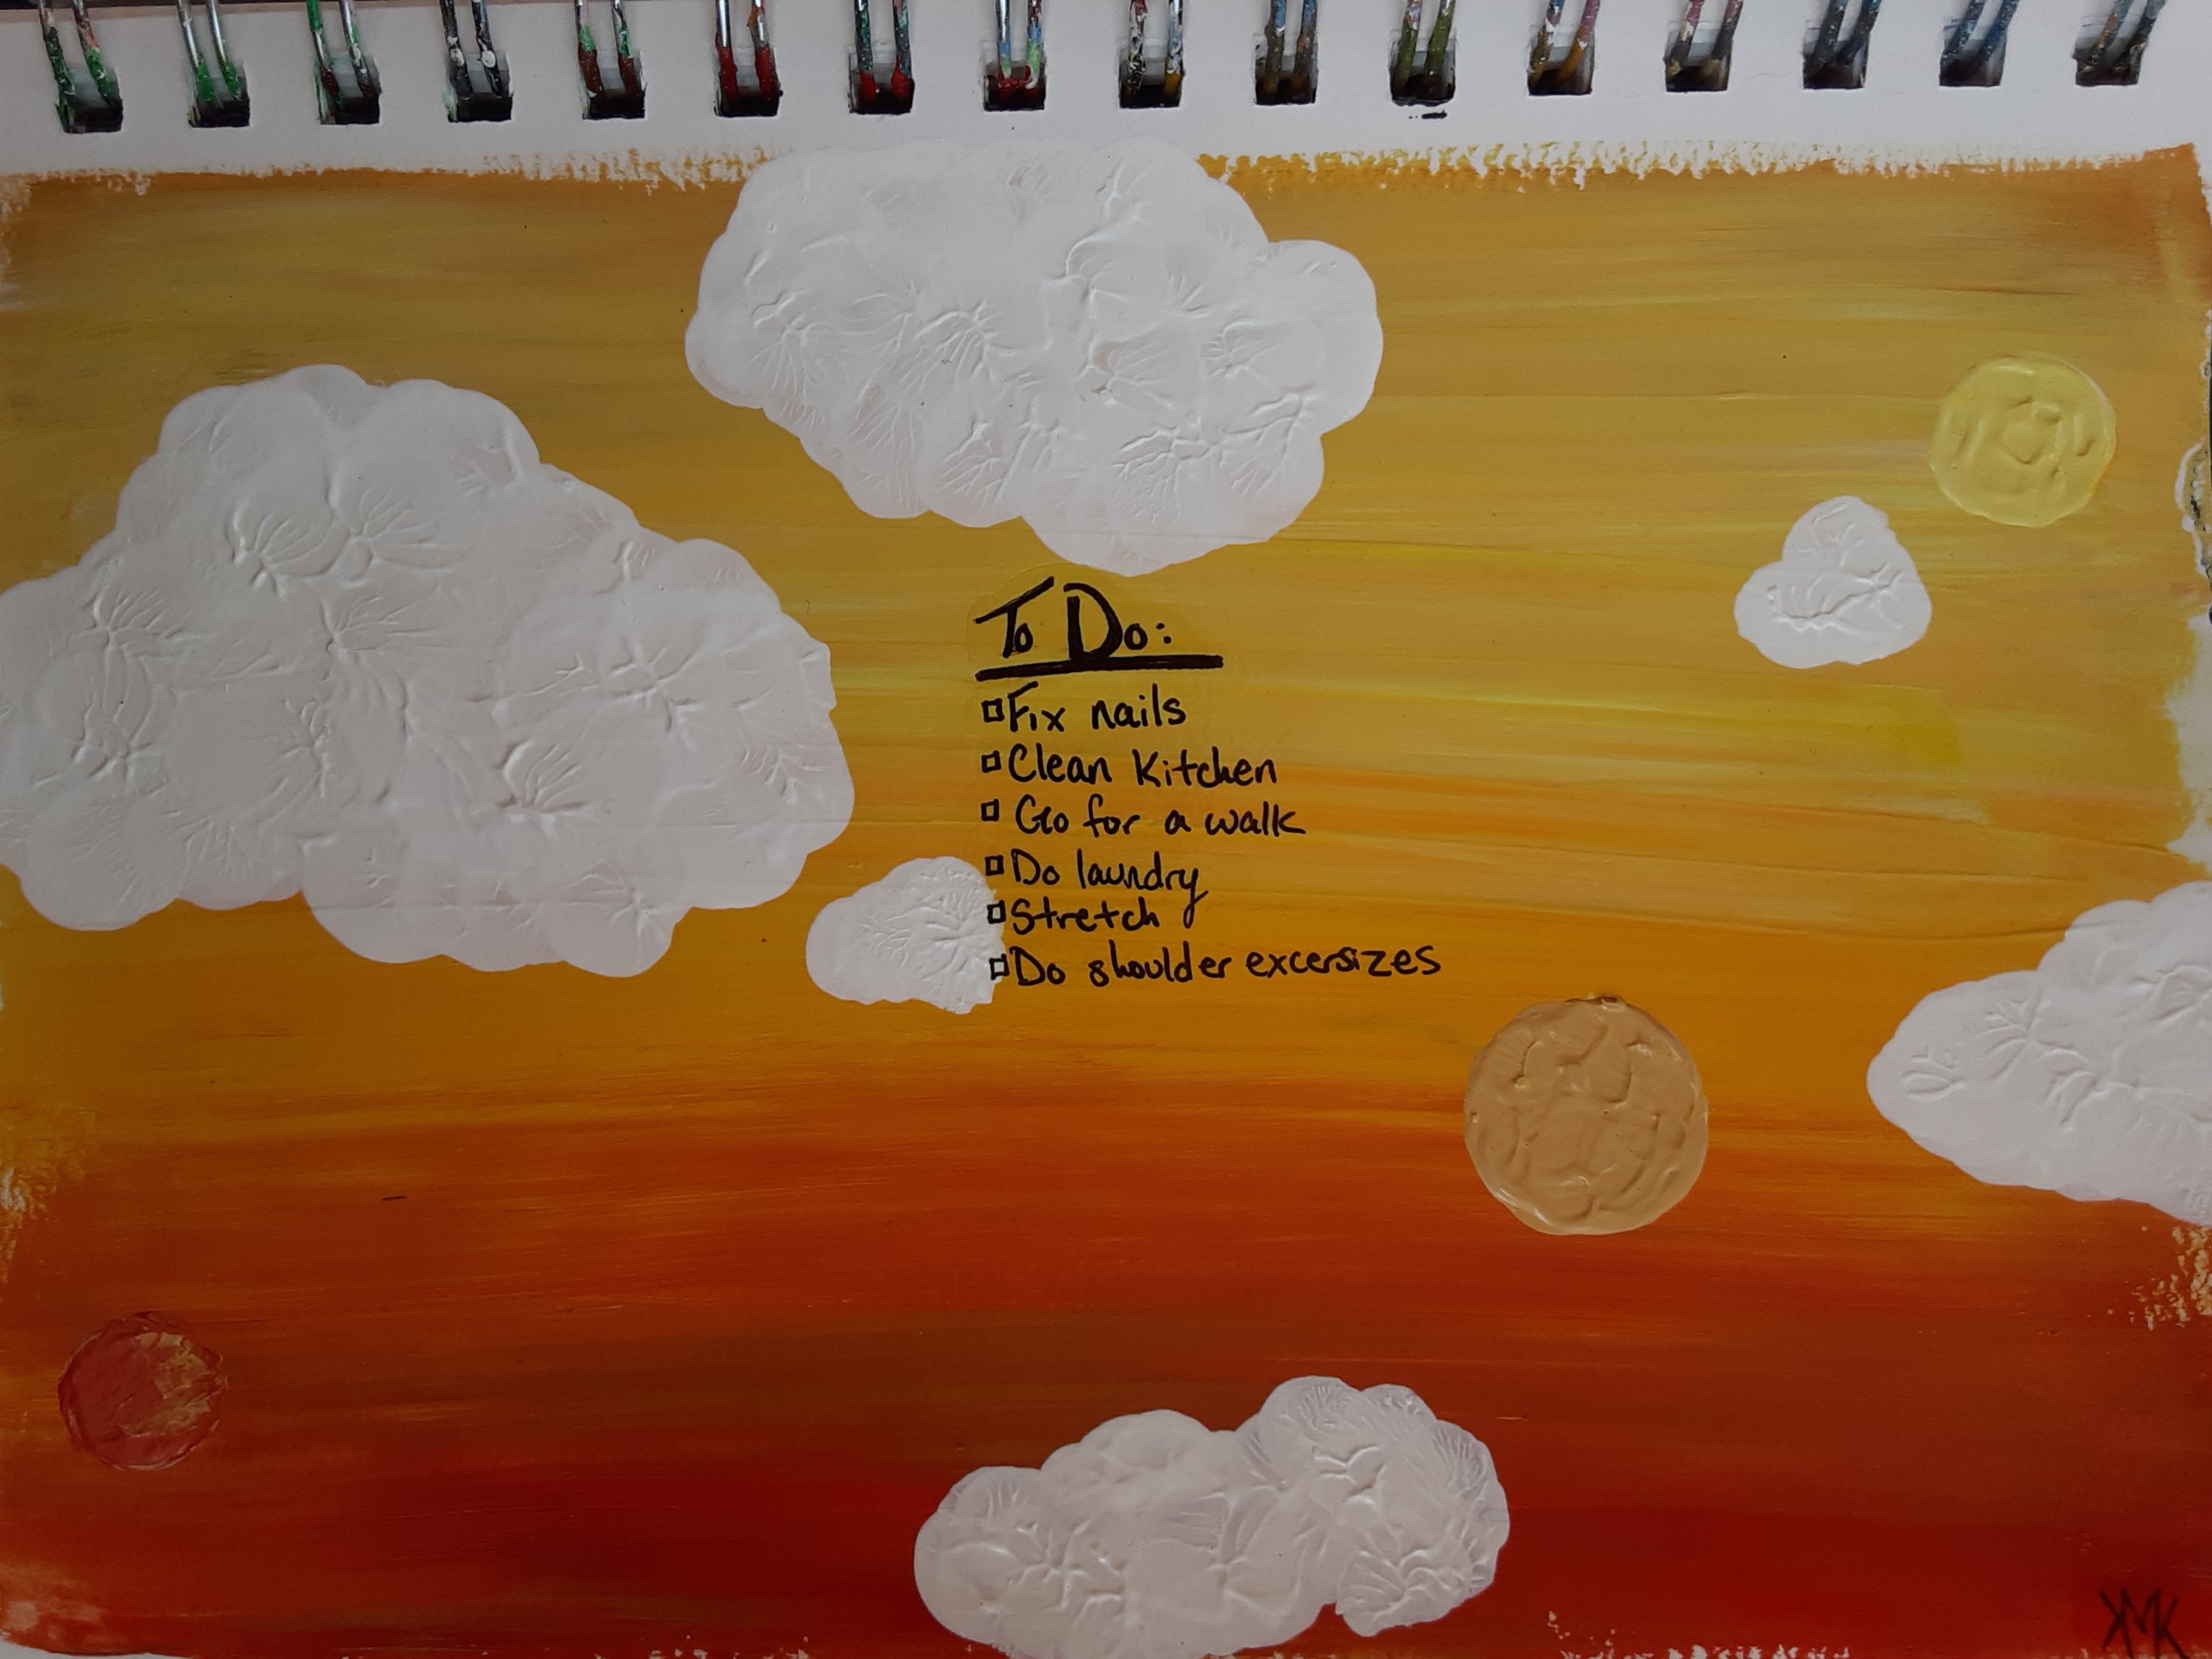 To Do:
Fix nails
Clean Kitchen
Go for a walk
Do laundry
Stretch
Do shoulder excersizes
KMK